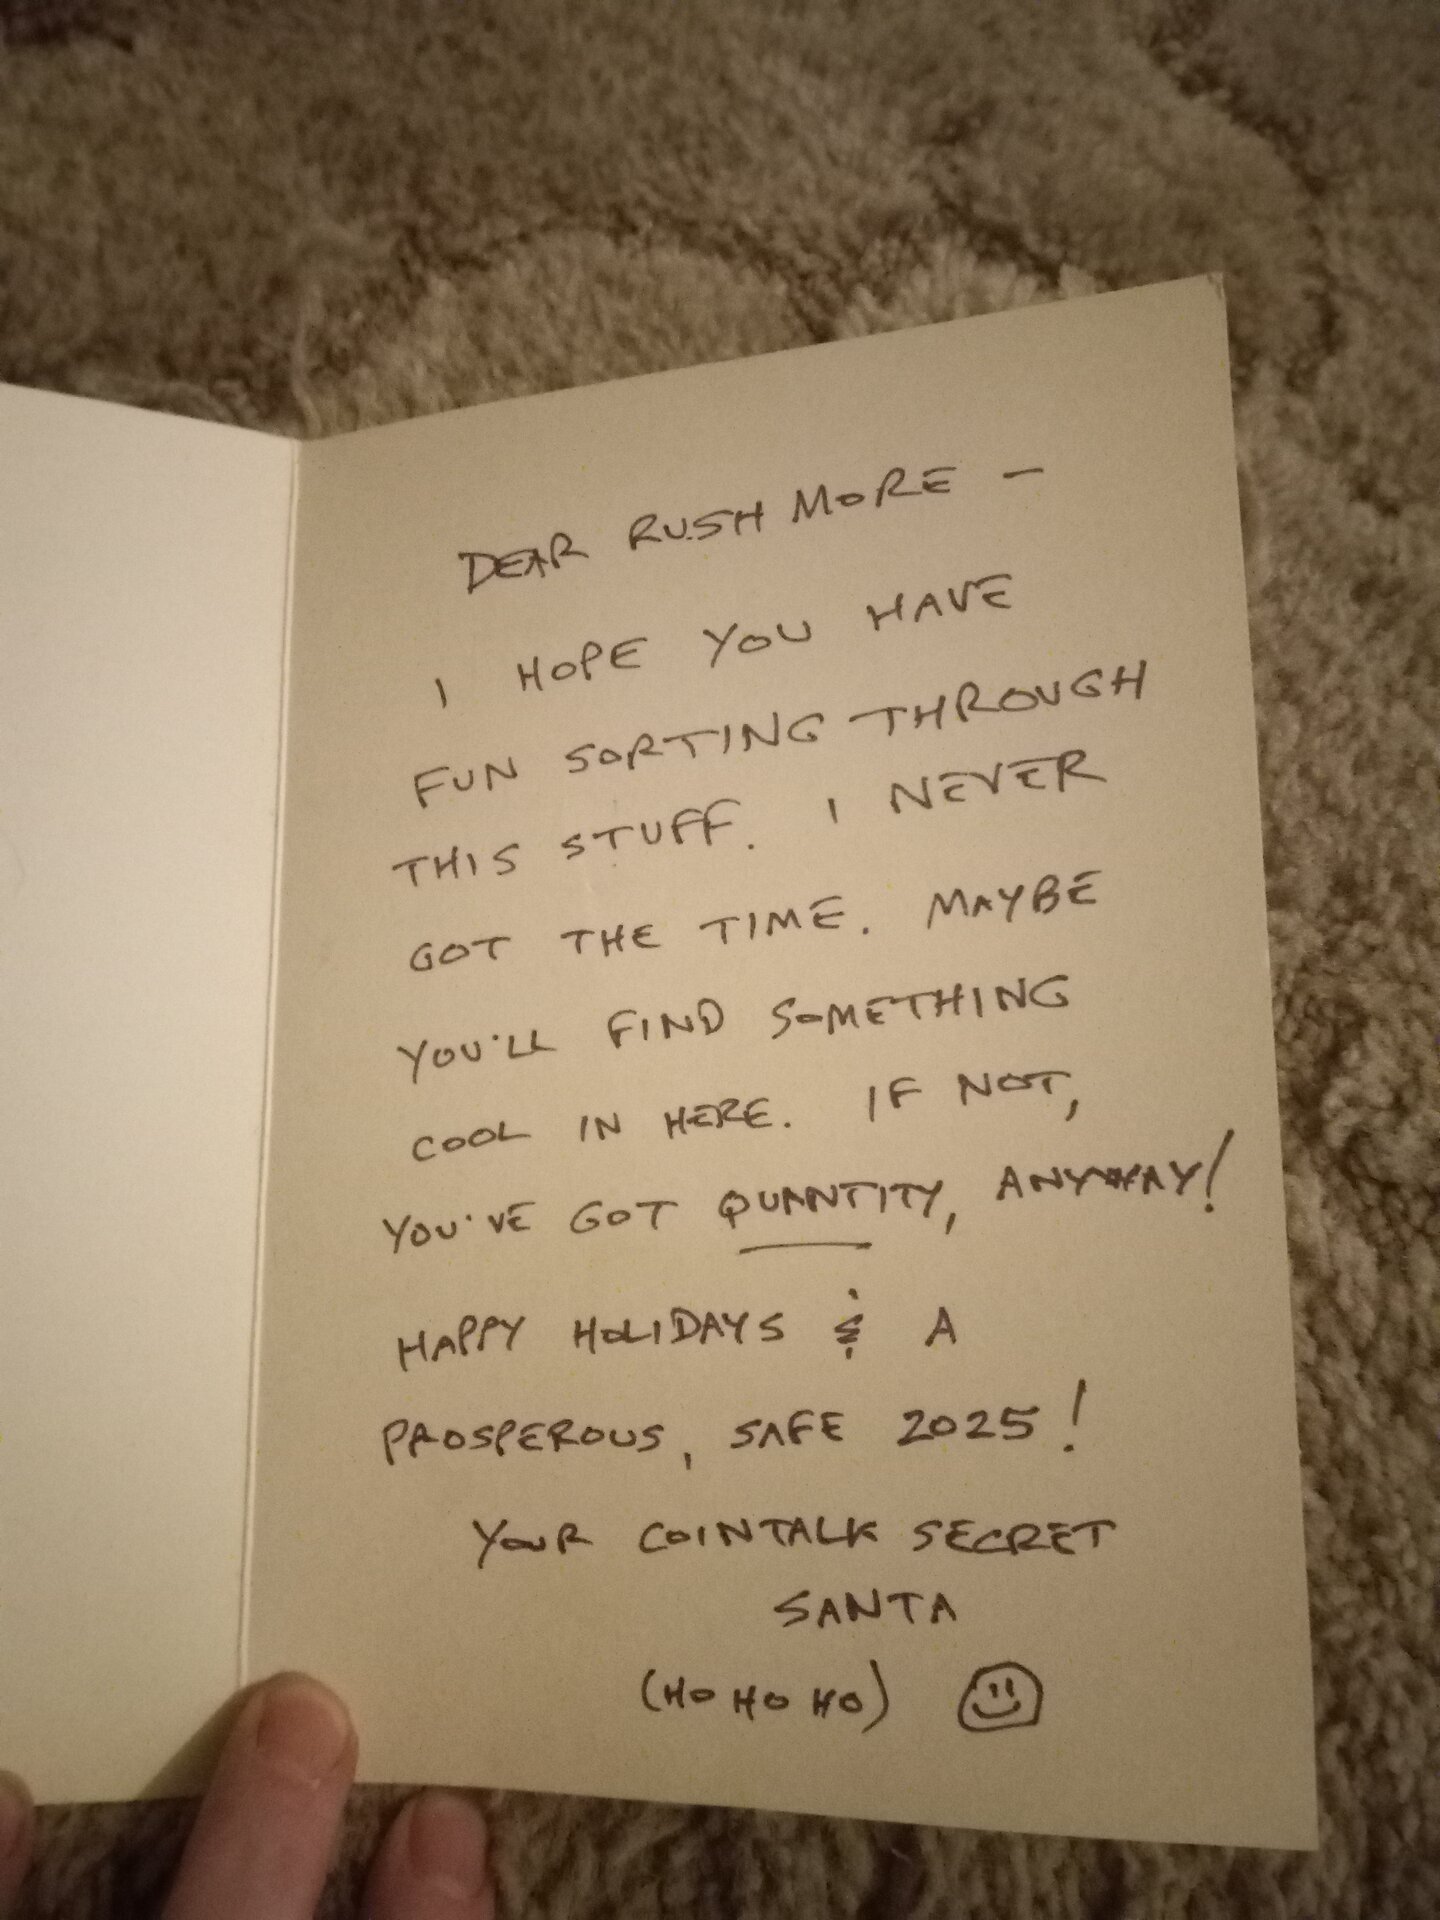 DEAR RUSHMORE —
I HOPE YOU HAVE
FUN SORTING THROUGH
THIS STUFF. I NEVER
GOT THE TIME. MAYBE
YOU'LL FIND SOMETHING
COOL IN HERE. IF NOT,
YOU'VE GOT QUANTITY, ANYWAY!
HAPPY HOLIDAYS & A
PROSPEROUS, SAFE 2025!
YOUR COINTALK SECRET
SANTA
(HO HO HO)